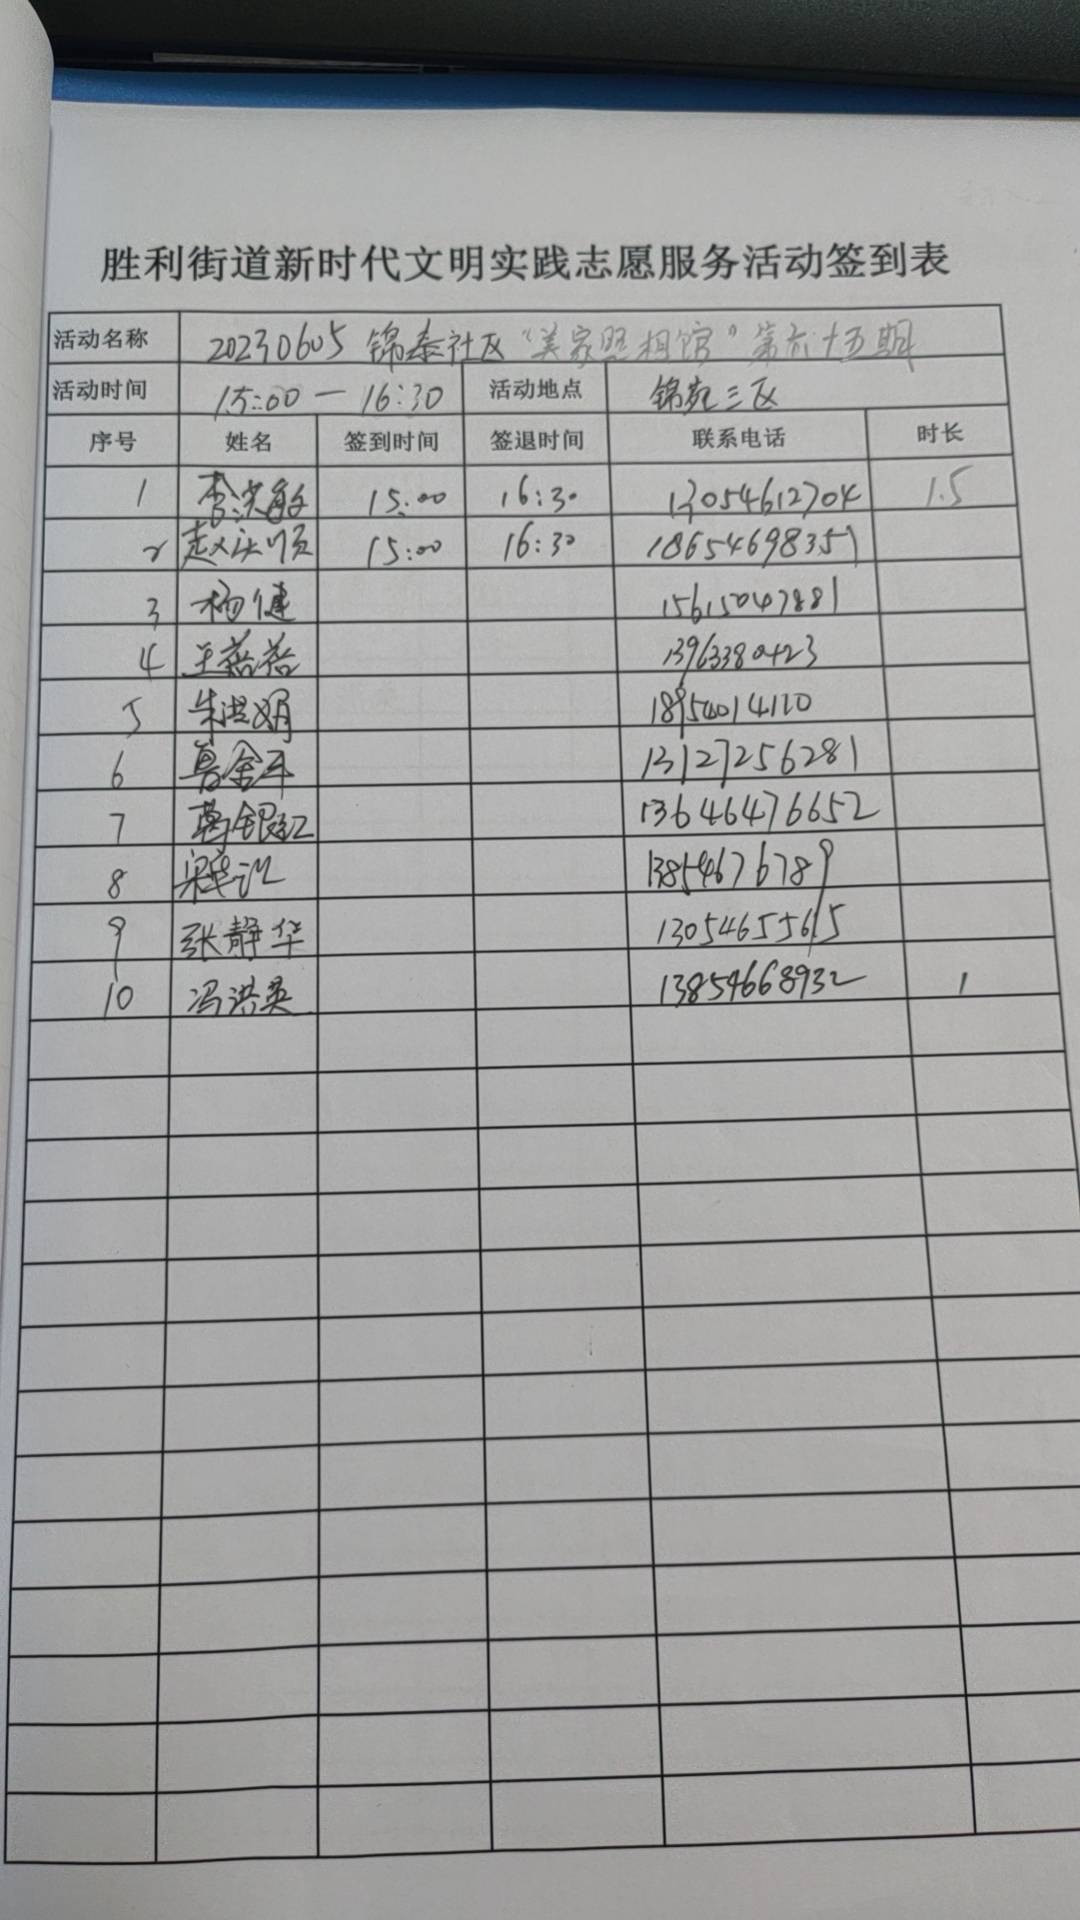 胜利街道新时代文明实践志愿服务活动签到表
活动名称 20230605 锦泰社区“美家照相馆”第六十五期
活动时间 15:00 — 16:30 活动地点 锦苑三区
序号 姓名 签到时间 签退时间 联系电话 时长
1 李洪敏 15:00 16:30 13054612704 1.5
2 15:00 16:30 18654698351
3 杨健 15615047881
4 王蓓蓓 13963380423
5 朱洪娟 18954014120
6 鲁金平 13127256281
7 葛银红 13646476652
8 13854676789
9 张静华 13054655615
10 冯洪英 13854668932